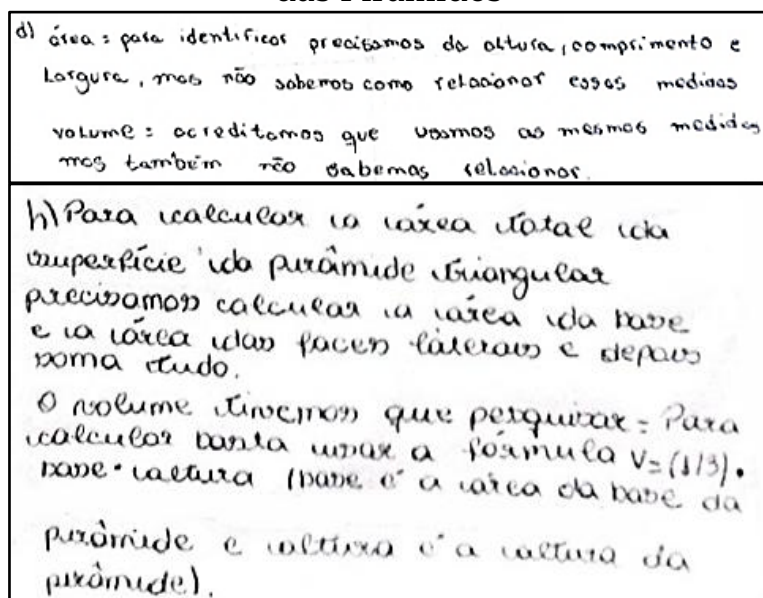 das Pirâmides
d) área: para identificar precisamos da altura, comprimento e
largura, mas não sabemos como relacionar essas medidas
volume: acreditamos que usamos as mesmas medidas
mas também não sabemos relacionar.
h) Para calcular a área total da
superfície da pirâmide triangular
precisamos calcular a área da base
e a área das faces laterais e depois
soma tudo.
O volume tivemos que pesquisar: Para
calcular basta usar a fórmula V=(1/3).
base·altura (base é a área da base da
pirâmide e altura é a altura da
pirâmide).